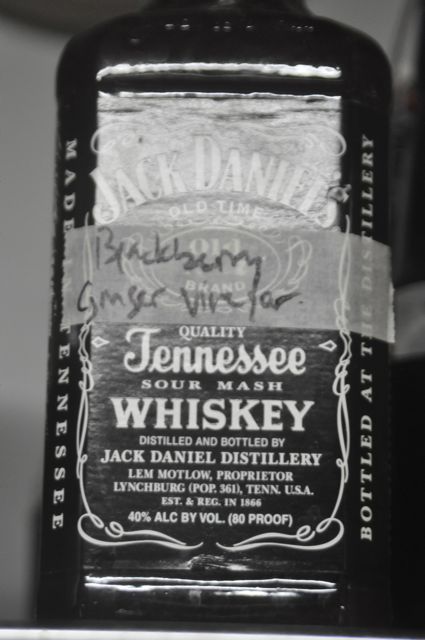 JACK DANIEL'S
OLD TIME
OLD
BRAND
Blackberry
Ginger Vinegar
QUALITY
Tennessee
SOUR MASH
WHISKEY
DISTILLED AND BOTTLED BY
JACK DANIEL DISTILLERY
LEM MOTLOW, PROPRIETOR
LYNCHBURG (POP. 361), TENN. U.S.A.
EST. & REG. IN 1866
40% ALC BY VOL. (80 PROOF)
MADE TENNESSEE
BOTTLED AT THE DISTILLERY